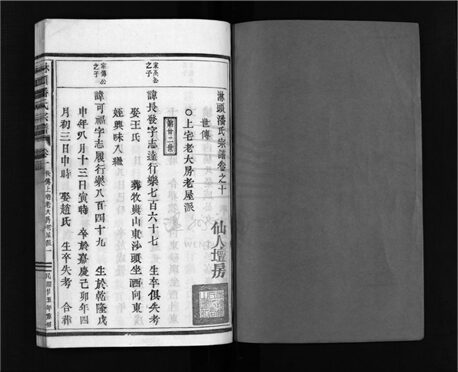 淋頭潘氏宗譜卷之十
世傳
仙人壇房
○上宅老大房老屋派
第廿二世
之子
諱長發字志達行樂七百六十七　生卒俱失考
娶王氏　葬牧輿山東沙頭坐酒向東
姪興味入繼
宗傳公
之子
諱可福字志履行樂八百四十九　生於乾隆戊
申年八月十三日寅時　卒於嘉慶己卯年四
月初三日申時　娶趙氏　生卒失考　合葬